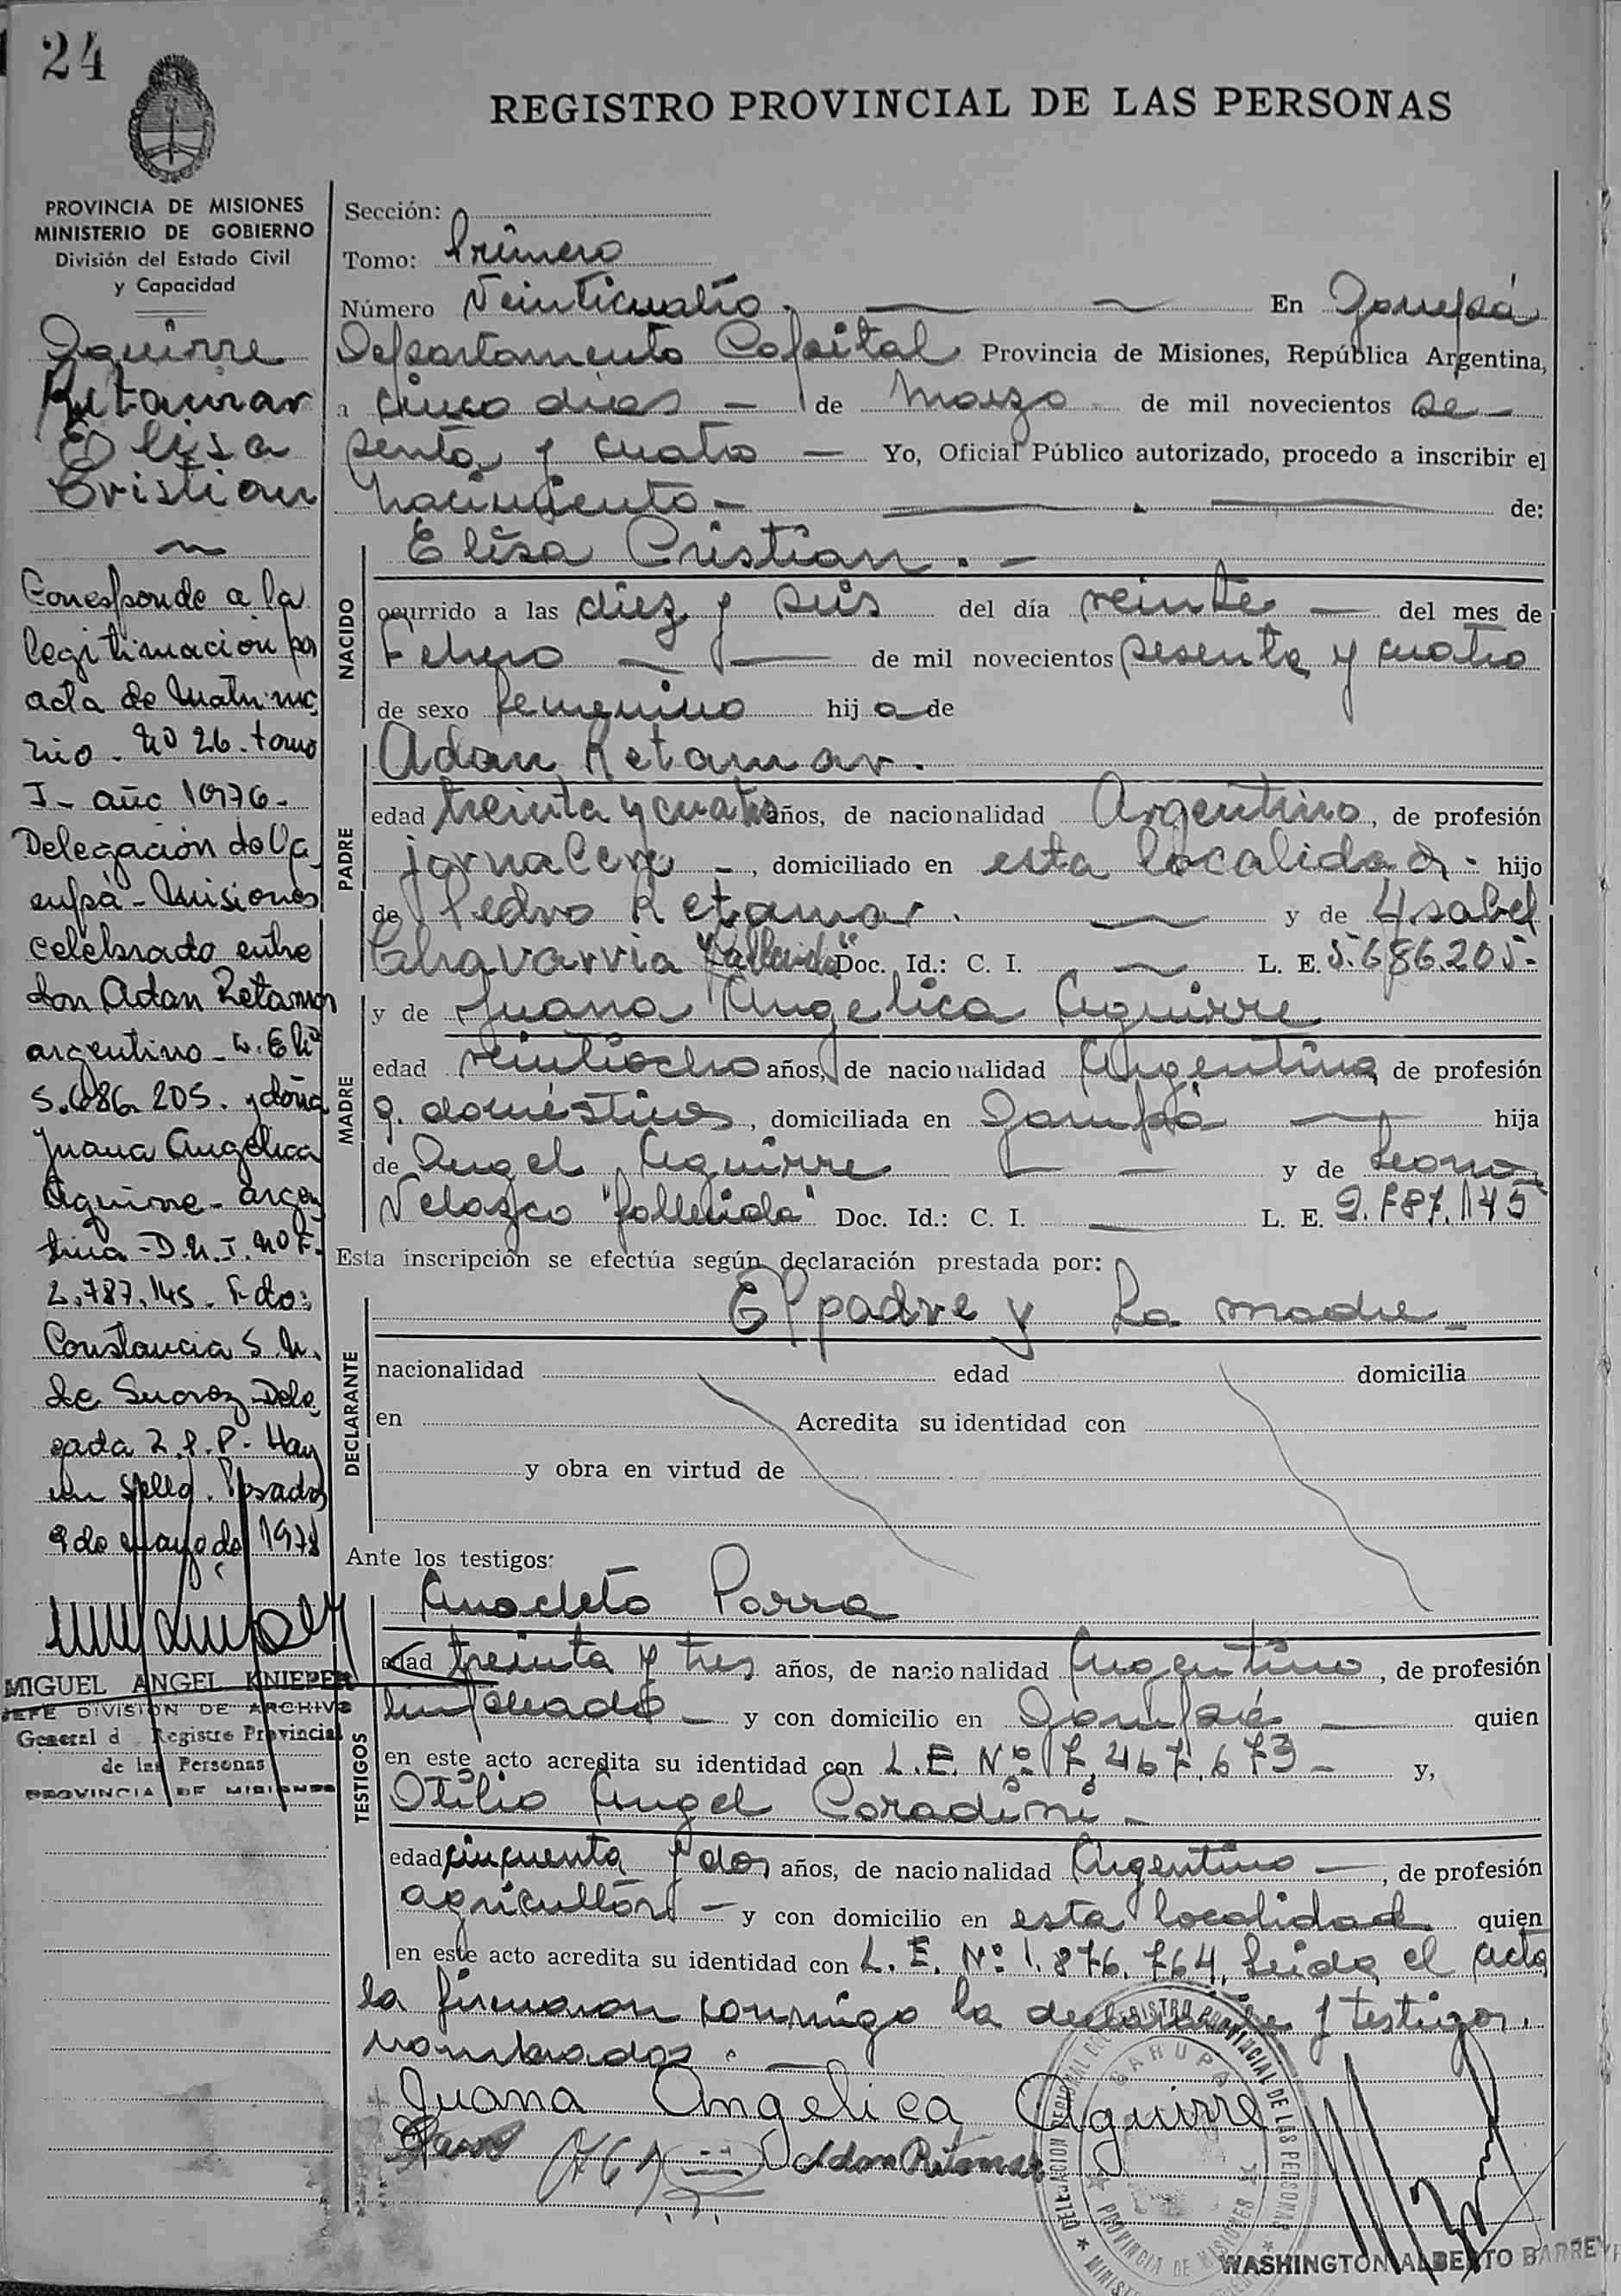 24
REGISTRO PROVINCIAL DE LAS PERSONAS
PROVINCIA DE MISIONES
MINISTERIO DE GOBIERNO
División del Estado Civil
y Capacidad
Aguirre
Retamar
Elisa
Cristian
Corresponde a la
legitimacion por
acta de Matrimo
nio - Nº 26 - tomo
I - año 1976 -
Delegación de Ga
rupá - Misiones
celebrado entre
don Adan Retamar
argentino - L. E. Nº
5.686.205. y doña
Juana Angélica
Aguirre - argen
tina - D.N.I. Nº F.
2.787.145. Fdo:
Constancia S. M.
de Suarez - Dele
gada R.P.P. Hay
un sello. Posadas
9 de Mayo de 1978
MIGUEL ANGEL KNIEPER
JEFE DIVISION DE ARCHIVO
General d Registro Provincial
de las Personas
PROVINCIA DE MISIONES
Sección:
Tomo: Primero
Número Veinticuatro. En Garupá
Departamento Capital Provincia de Misiones, República Argentina,
a cinco dias - de Marzo de mil novecientos se -
senta y cuatro — Yo, Oficial Público autorizado, procedo a inscribir el
nacimiento - de:
NACIDO
Elisa Cristian . -
ocurrido a las diez y seis del día veinte — del mes de
Febrero — de mil novecientos sesenta y cuatro
de sexo femenino hij a de
PADRE
Adan Retamar.
edad treinta y cuatro años, de nacionalidad Argentino, de profesión
jornalero -, domiciliado en esta localidad - hijo
de Pedro Retamar. y de Ysabel
Chavarria "fallecida" Doc. Id.: C. I. — L. E. 5.686.205-
MADRE
y de Juana Angelica Aguirre
edad veintiocho años, de nacionalidad Argentina, de profesión
q. domésticos, domiciliada en Garupá — hija
de Angel Aguirre — y de Leonor
Velazco "fallecida" Doc. Id.: C. I. — L. E. 2.787.145
Esta inscripción se efectúa según declaración prestada por:
DECLARANTE
El padre y La madre -
nacionalidad edad domicilia
en Acredita su identidad con
y obra en virtud de
Ante los testigos:
TESTIGOS
Anacleto Parra
edad treinta y tres años, de nacionalidad Argentino, de profesión
Empleado - y con domicilio en Garupá — quien
en este acto acredita su identidad con L.E. Nº 7.467.673 - y,
Otilio Angel Coradini -
edad cincuenta y dos años, de nacionalidad Argentino —, de profesión
agricultor - y con domicilio en esta localidad quien
en este acto acredita su identidad con L. E. Nº 1.876.764. Leida el acta
la firmaron conmigo la declarante y testigos.
nombrados. —
Juana Angelica Aguirre
Adan Retamar
DELEGACION REGIONAL DEL REGISTRO PROVINCIAL DE LAS PERSONAS
GARUPA
PROVINCIA DE MISIONES
WASHINGTON ALBERTO BARREY